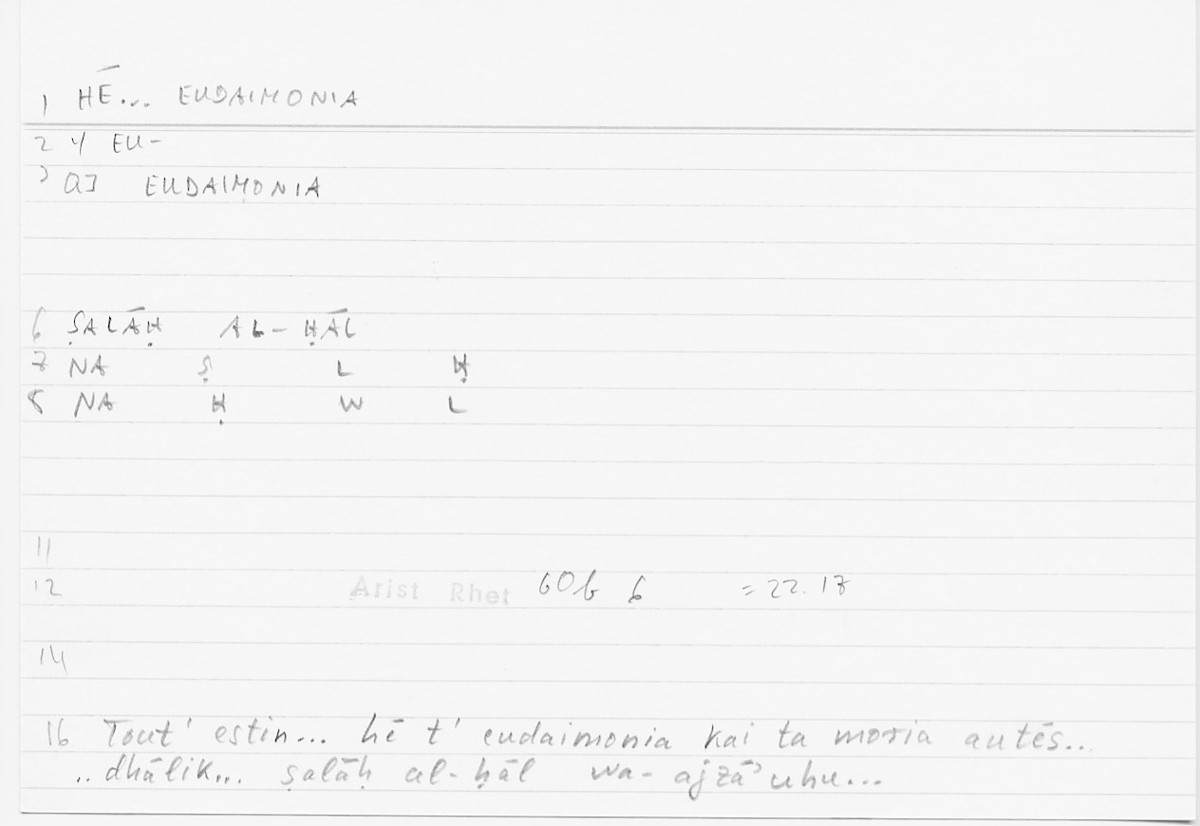 1 HĒ... EUDAIMONIA
2 4 EU-
3 aJ EUDAIMONIA
6 ṢALĀḤ AL-ḤĀL
7 NA Ṣ L Ḥ
8 NA Ḥ W L
11
12 Arist Rhet 60b 6 = 22.17
14
16 Tout' estin... hē t' eudaimonia kai ta moria autēs...
..dhālik... ṣalāḥ al-ḥāl wa-ajzāʾuhu...